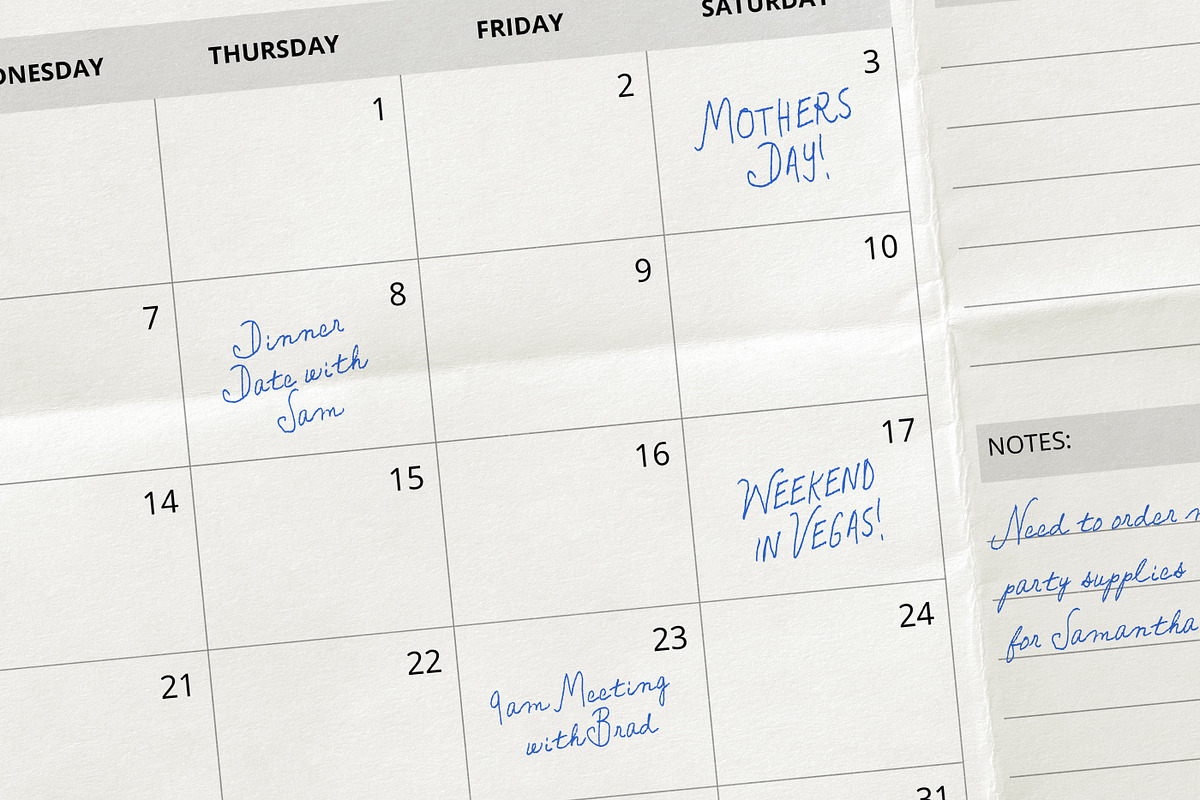 THURSDAY
FRIDAY
SATURDAY
1
2
3
MOTHERS
DAY!
7
8
Dinner
Date with
Sam
9
10
14
15
16
17
WEEKEND
IN VEGAS!
21
22
23
9am Meeting
with Brad
24
31
NOTES:
Need to order
party supplies
for Samantha